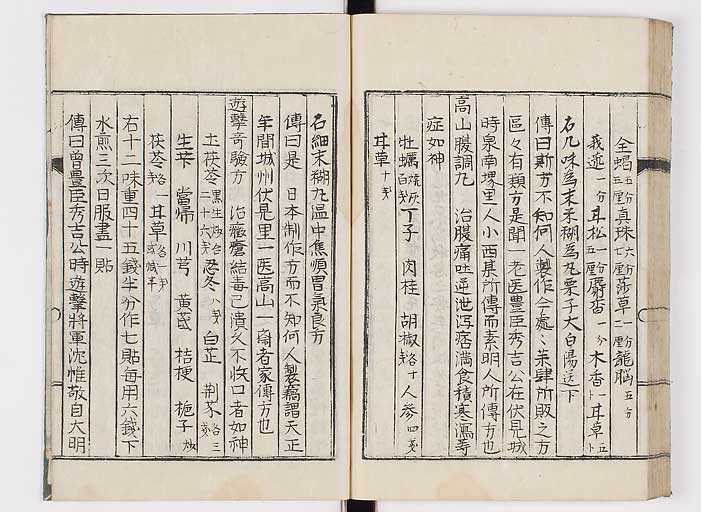 全蝎五分五厘真珠一分六厘莎草一分二厘龍脳五分
我述一分耳松一分五厘麝香一分木香一分耳草五分
右九味為末米糊為丸栗子大白湯送下
傳曰斯方不知何人製作今處々薬肆所販之方
區々有類方是聞一老医豊臣秀吉公在伏見城
時泉南堺里人小西某所傳而素明人所傳方也
高山腹調丸 治腹痛吐逆泄瀉痞満食積寒濕等
症如神
牡蠣燒灰百戔丁子 肉桂 胡椒各十戔人参四戔
耳草十戔
右細末糊丸温中焦順胃氣良方
傳曰是 日本制作方而不知何人製藥謂天正
年間城州伏見里一医高山一斎者家傳方也
遊擊奇驗方 治癥瘡結毒已潰久不收口者如神
土茯苓二十六戔忍冬八戔白芷 荊芥各三戔
生芐 當帰 川芎 黄芪 桔梗 梔子
茯苓 耳草
右十二味重四十五錢半分作七貼每用六錢下
水煎三次日服盡一貼
傳曰曽豊臣秀吉公時遊擊將軍沈惟敬自大明